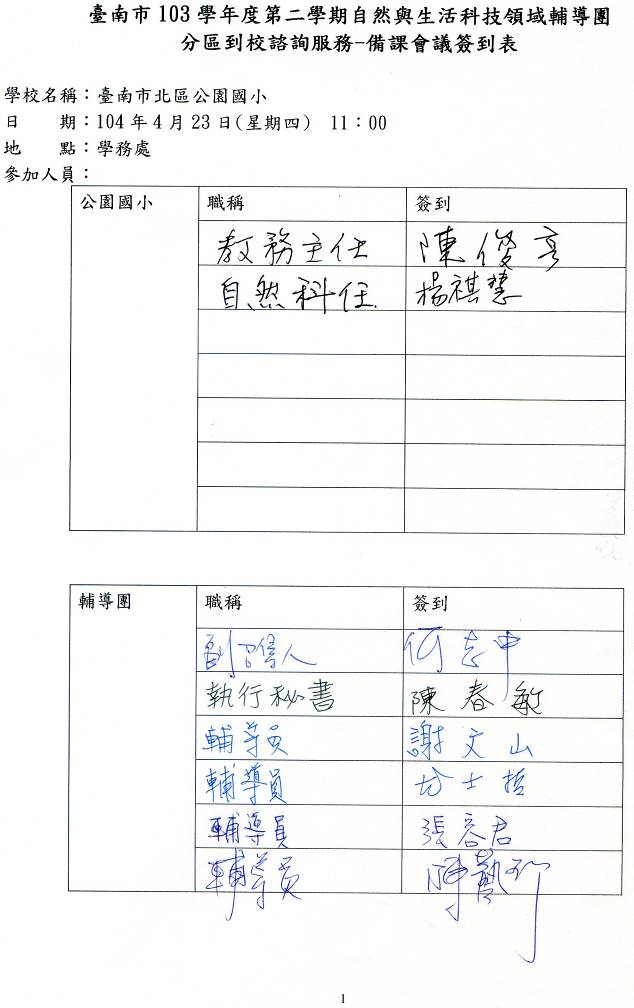 臺南市 103 學年度第二學期自然與生活科技領域輔導團
分區到校諮詢服務-備課會議簽到表
學校名稱：臺南市北區公園國小
日　　期：104 年 4 月 23 日(星期四)　11：00
地　　點：學務處
參加人員：
公園國小　職稱　簽到
教務主任　陳俊亨
自然科任　楊祺慧
輔導團　職稱　簽到
副召集人　何志中
執行秘書　陳春敏
輔導員　謝文山
輔導員　士哲
輔導員　張容君
輔導員　陳
1